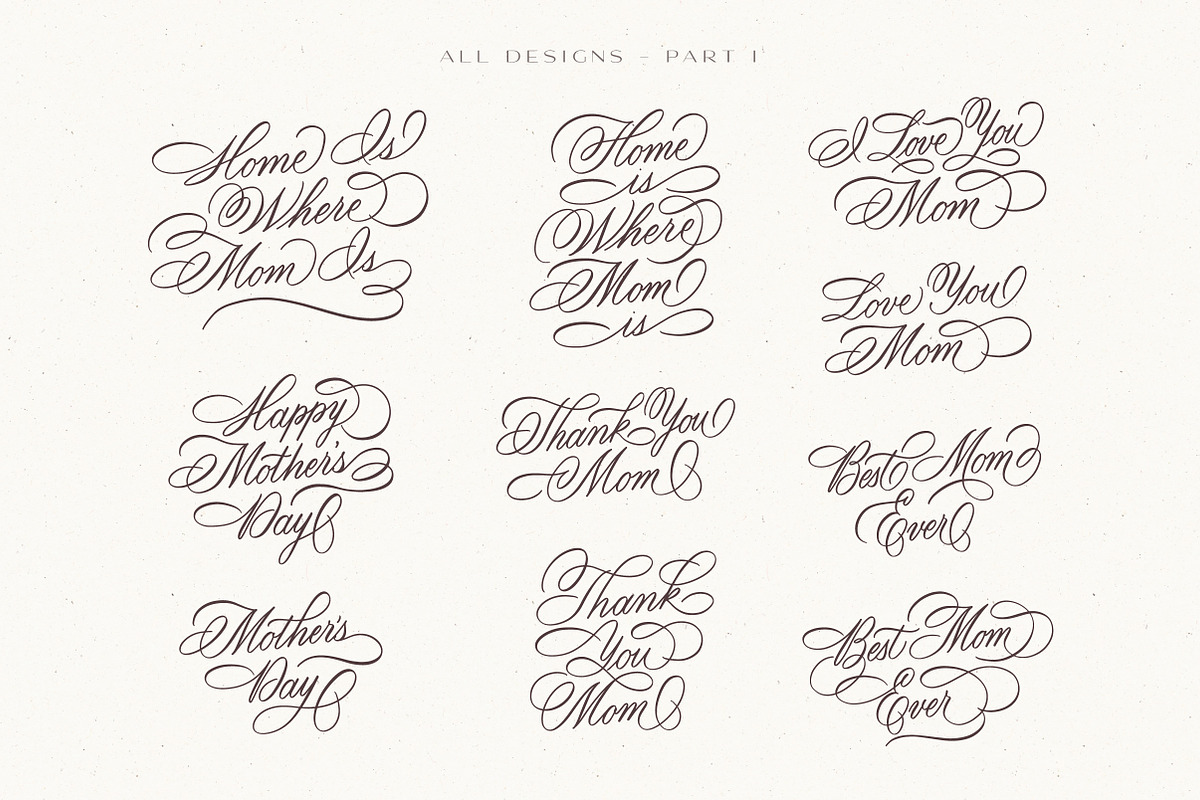 ALL DESIGNS – PART I
Home Is
Where
Mom Is
Happy
Mother's
Day
Mother's
Day
Home
is
Where
Mom
is
Thank You
Mom
Thank
You
Mom
I Love You
Mom
Love You
Mom
Best Mom
Ever
Best Mom
Ever